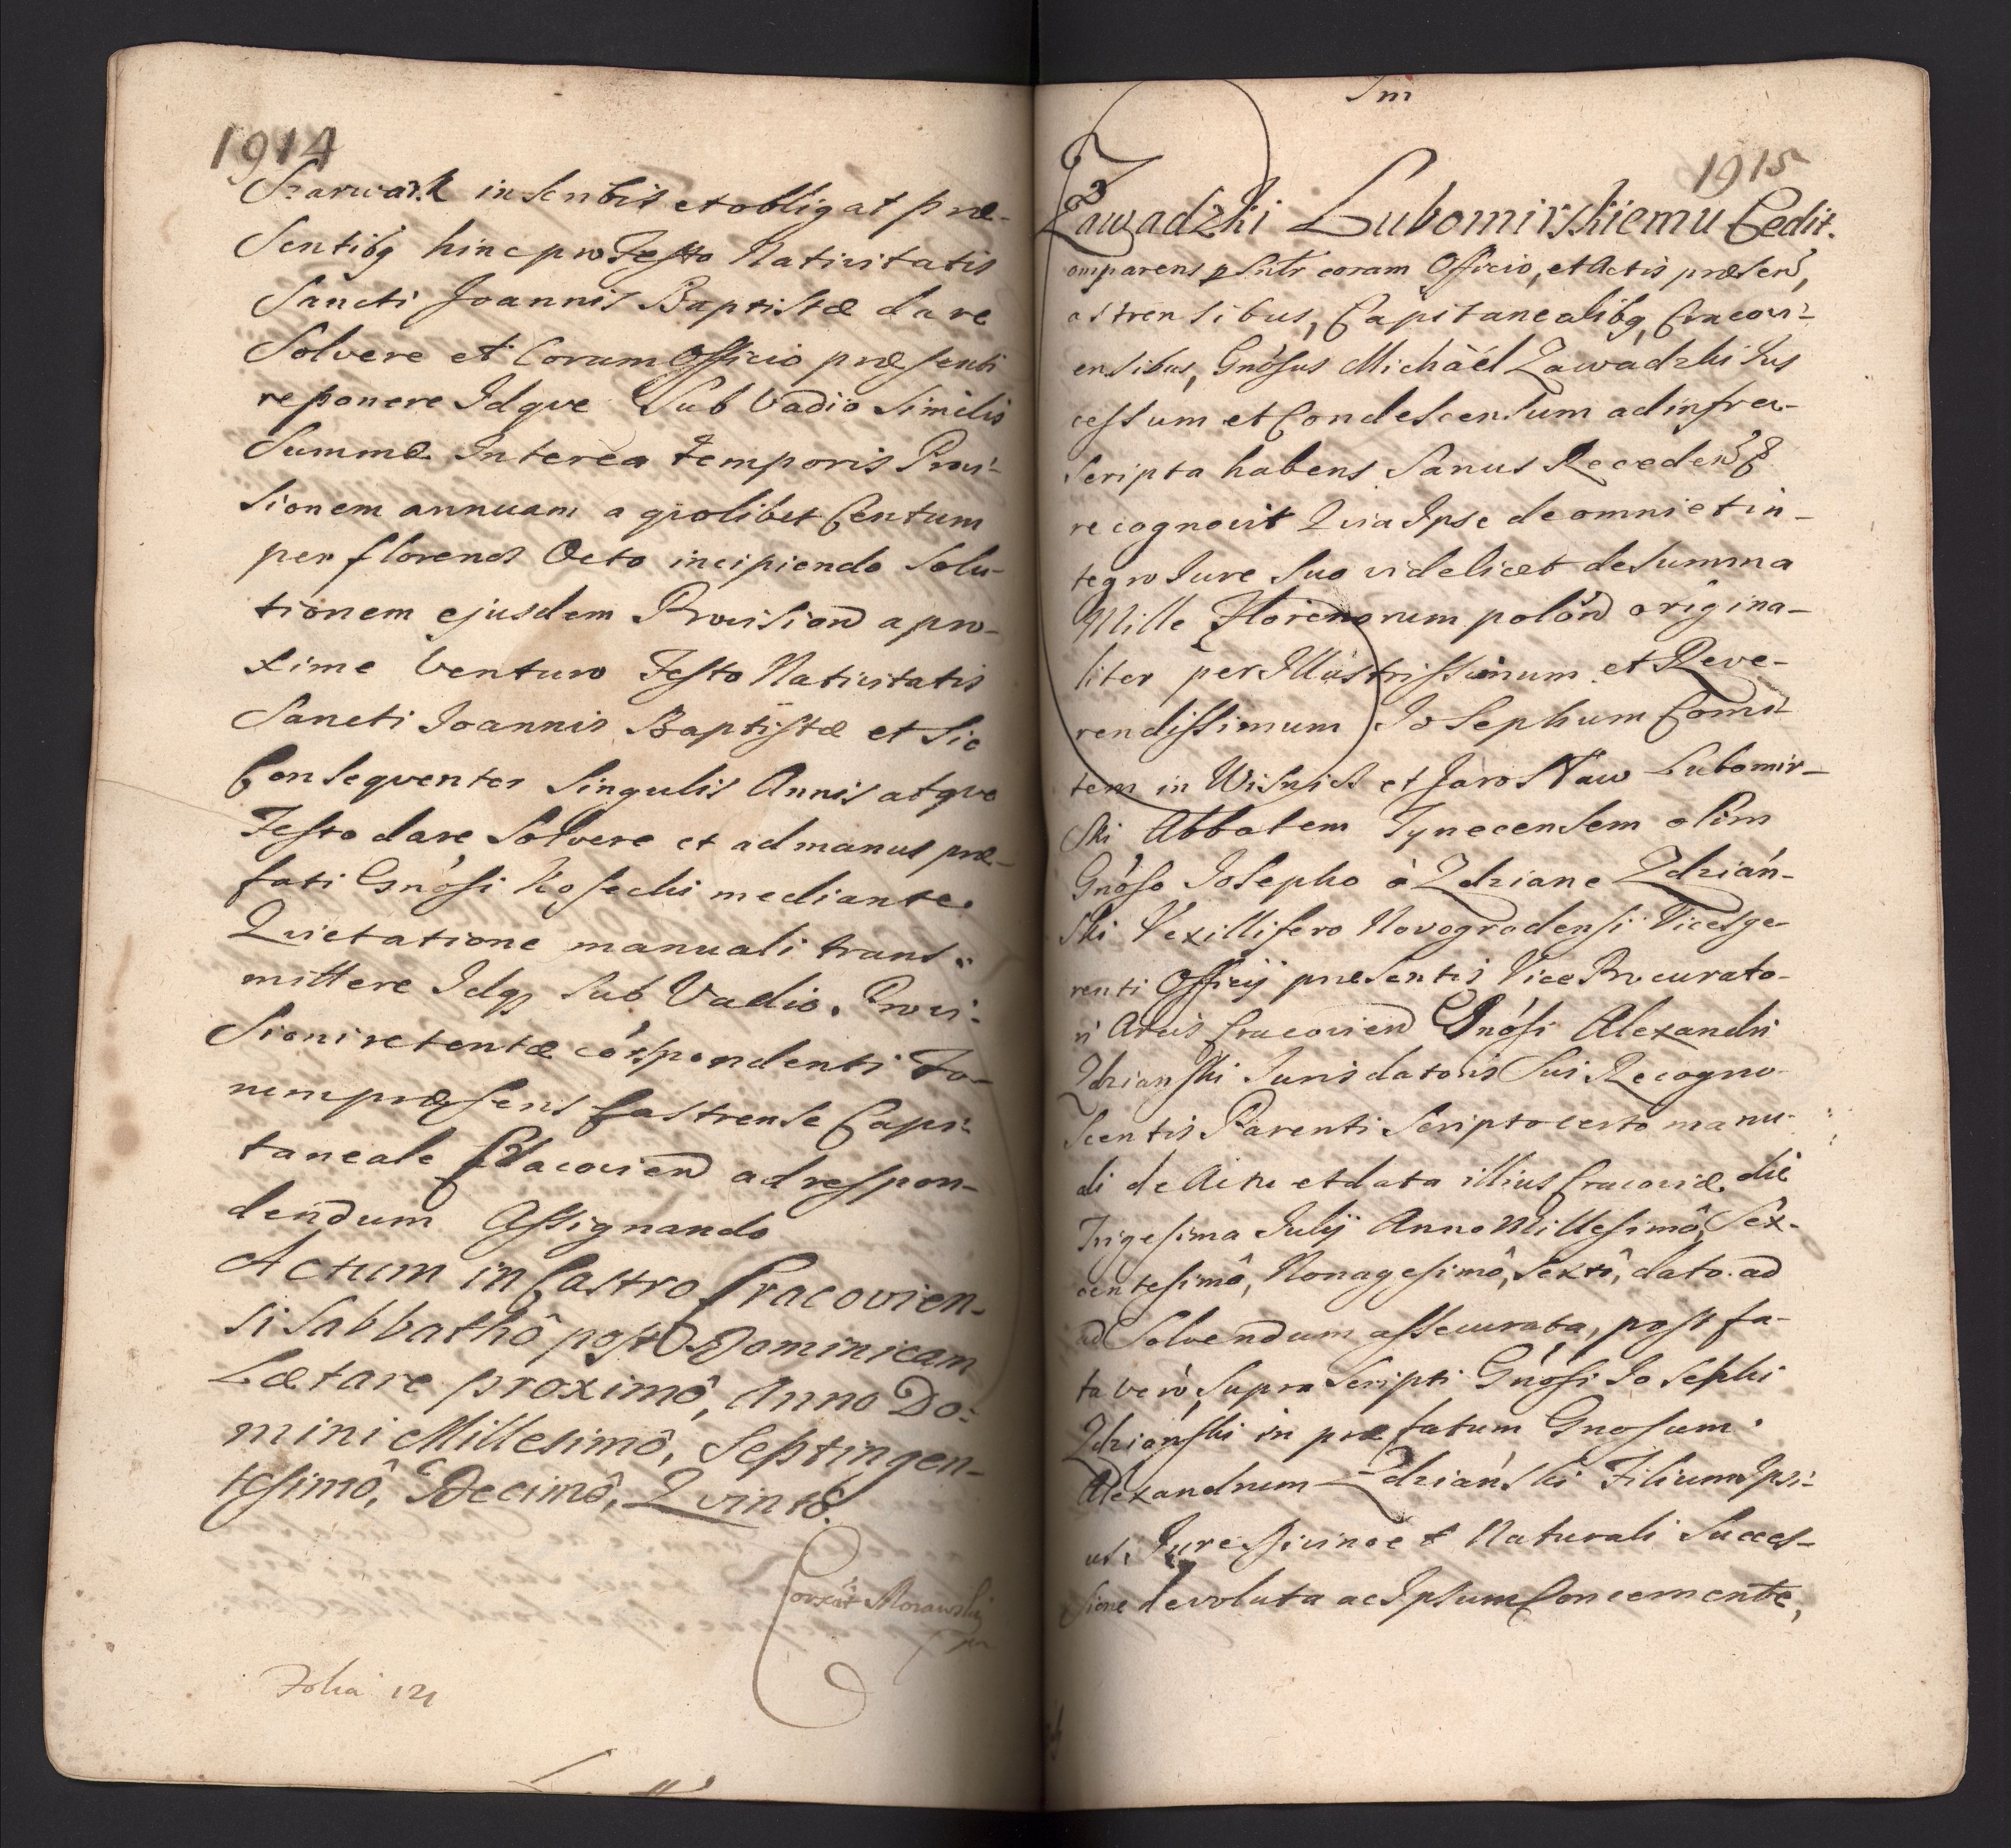 1914
Szarwark inscribit et obligat præ-
sentibq hinc pro Festo Nativitatis
Sancti Joannis Baptistæ dare
Solvere et Coram Officio præsenti
reponere Idqve Sub Vadio Similis
Summæ Interea temporis Provi-
sionem annuam a qvolibet Centum
per florenos Octo incipiendo Solu-
tionem ejusdem Provision a pro-
xime Venturo Festo Nativitatis
Sancti Joannis Baptistæ et sic
Conseqventer Singulis Annis atqve
Festo dare Solvere et ad manus præ-
fati Gnósi mediante
Qvietatione manuali trans-
mittere Idq Sub Vadio Provi-
sioni retentæ córspondenti Fo-
rum præsens Castrense Capi-
taneale Cracovien ad respon-
dendum Assignando
Actum in Castro Cracovien-
si Sabbathô post Dominicam
Lætare proximô, Anno Do-
mini Millesimô, Septingen-
tesimô, Decimô, Qvintô.
Morawsky
Folia 121
Im
1915
Zawadzki Lubomirskiemu Cedit.
omparens psnlr coram Officio, et Actis præsen,
astrensibus, Capitanealibq, Cracovi-
ensibus, Gnósus Michäel Zawadzki Jus
cessum et Condescensum ad infra-
scripta habens Sanus Receden
recognovit Qvia Ipse de omni et in-
tegro Jure Suo videlicet de Summa
Mille Florenorum polon origina-
liter per Illustrissimum et Reve-
rendissimum Josephum Comi-
tem in Wisnicz et Jarosław Lubomir-
ski Abbatem Tynecensem olim
Gnóso Josepho à Zdziane Zdzián-
ski Vexillifero Novogrodensi Vicesge-
renti Officij præsentis Vice Procurato-
ri Arcis Cracovien Gnósi Alexandri
Zdzianski Juris datoris Sui Recogno-
scentis Parenti Scripto certo manu-
ali de Actu et data illius Cracoviæ die
Trigesima Julij Anno Millesimô, Sex-
centesimô, Nonagesimô, Sextô, dato ad
ad Solvendum assecurata, post fa-
ta verò, Supra Scripti Gnósi Josephi
Zdziánski in præfatum Gnosum
Alexandrum Zdziánski Filium Ipsi-
us Jure Divino et Naturali Succes-
sione devoluta ac Ipsum Concernente,